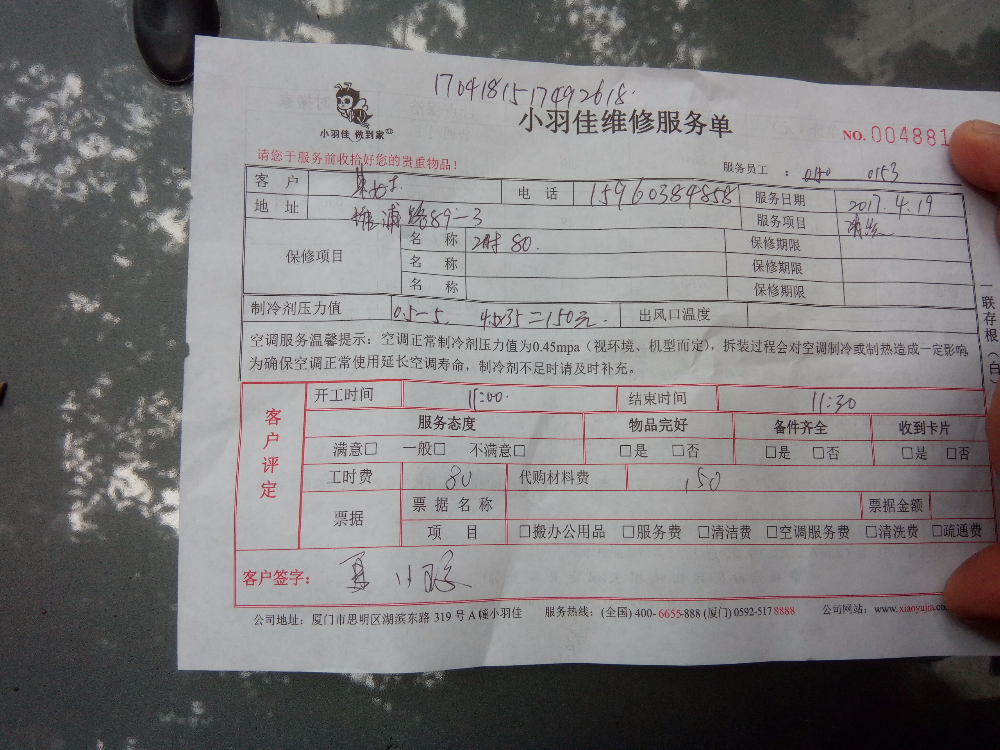 1704181517492618
小羽佳 做到家
小羽佳维修服务单
NO. 004881
请您于服务前收拾好您的贵重物品！
服务员工 ： 0153
客 户 电 话 15960384858 服务日期 2017.4.19
地 址 浦路89-3 服务项目
保修项目 名 称 80. 保修期限
名 称 保修期限
名 称 保修期限
制冷剂压力值 0.5-5 45x35=150元. 出风口温度
空调服务温馨提示：空调正常制冷剂压力值为0.45mpa（视环境、机型而定），拆装过程会对空调制冷或制热造成一定影响，
为确保空调正常使用延长空调寿命，制冷剂不足时请及时补充。
一联存根（白）
客户评定
开工时间 11:00. 结束时间 11:30
服务态度 物品完好 备件齐全 收到卡片
满意□ 一般□ 不满意□ □是 □否 □是 □否 □是 □否
工时费 80 代购材料费 150
票据 票 据 名 称 票据金额
项 目 □搬办公用品 □服务费 □清洁费 □空调服务费 □清洗费 □疏通费
客户签字：
公司地址：厦门市思明区湖滨东路 319 号 A 幢小羽佳 服务热线：(全国) 400-6655-888 (厦门) 0592-5178888 公司网站：www.xiaoyujia.co